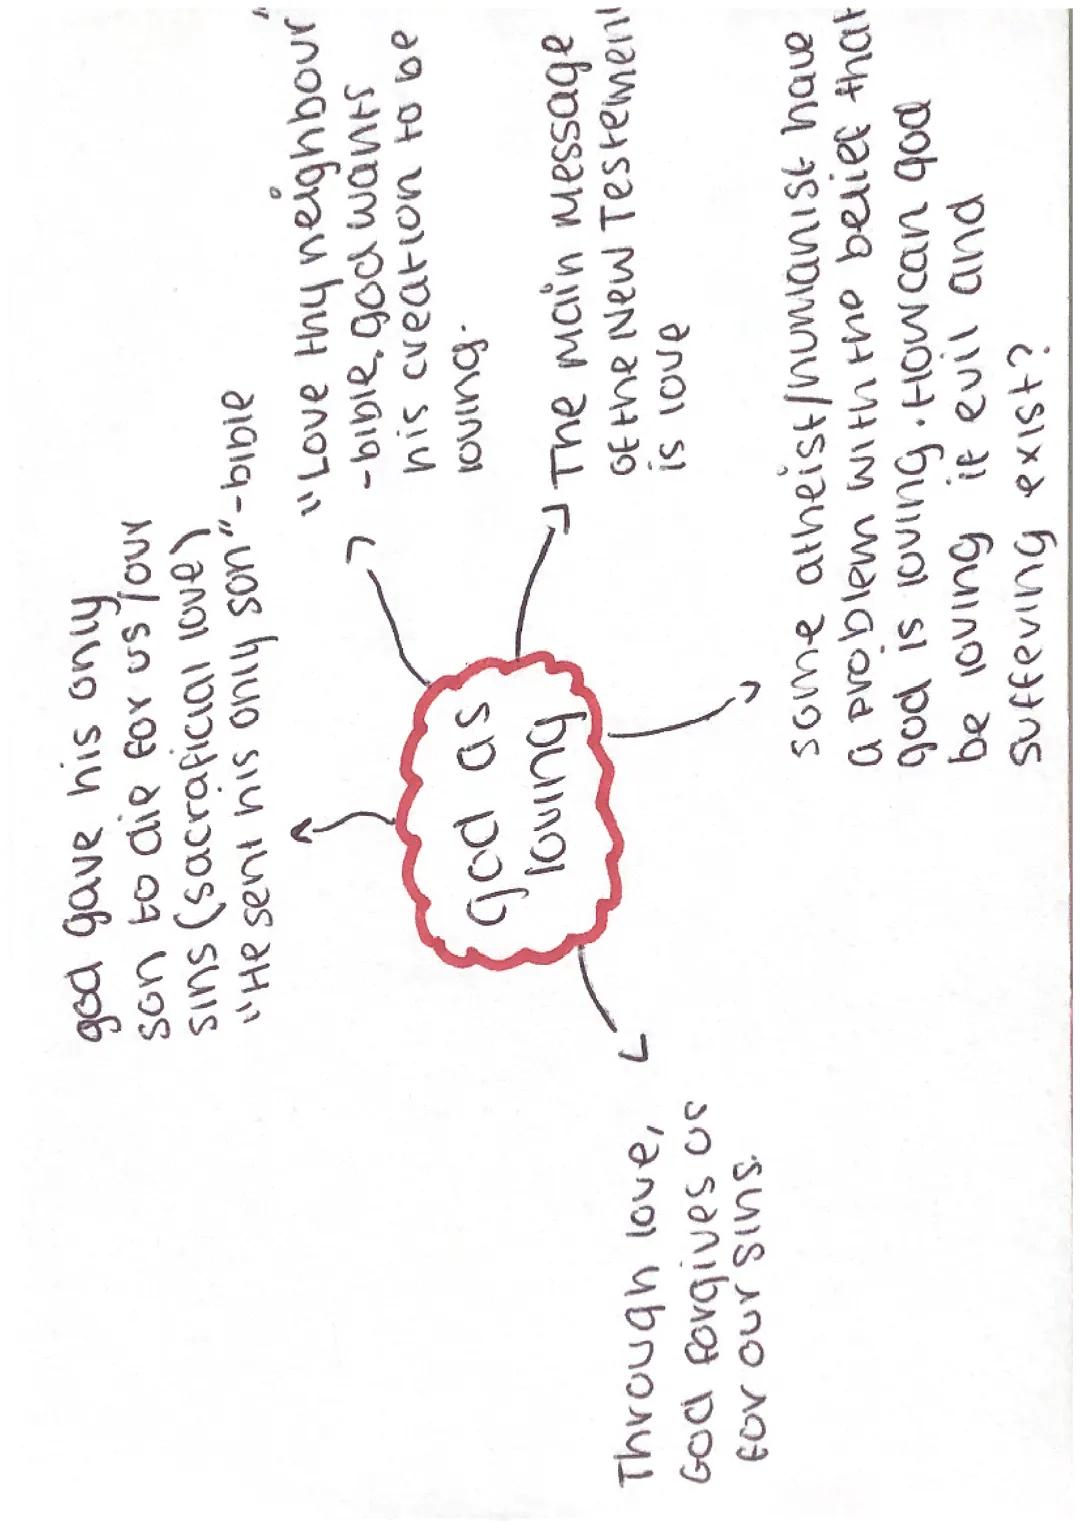 god gave his only
son to die for us/our
sins (sacraficial love)
"He sent his only son" -bible
"Love thy neighbour"
-bible, god wants
his creation to be
loving.
god as
loving
The main message
of the New Testement
is love
Through love,
God forgives us
for our sins.
some atheist/humanist have
a problem with the belief that
god is loving. How can god
be loving if evil and
suffering exist?